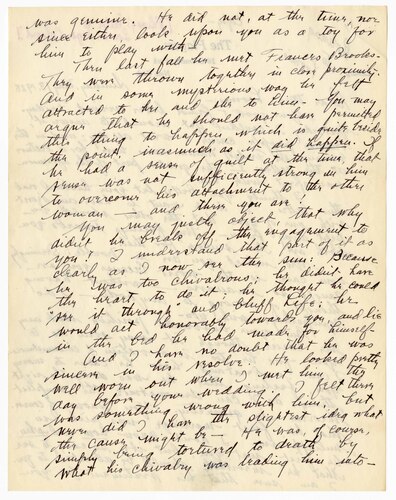 was genuine. He did not, at the time, nor
since either, look upon you as a toy for
him to play with.
Then last fall he met Frances Brooks-
They were thrown together in close proximity.
And in some mysterious way he felt
attracted to her and she to him - You may
argue that he should not have permitted
this thing to happen, which is quite beside
the point, inasmuch as it did happen. If
he had a sense of guilt at the time, that
sense was not sufficiently strong in him
to overcome his attachment to the other
woman — and there you are!
You may justly object, that why
didn't he break off the engagement to
you! I understand that part of it as
clearly as I now see the sun: Because
he was too chivalrous; he didn't have
the heart to do it; he thought he could
"see it through" and bluff Life; he
would act honorably towards you and lie
in the bed he had made for himself-
And I have no doubt that he was
sincere in his resolve. He looked pretty
well worn out when I met him the
day before your wedding. I felt there
was something wrong with him, but
never did I have the slightest idea what
the cause might be - He was, of course,
simply being tortured to death by
what his chivalry was leading him into-